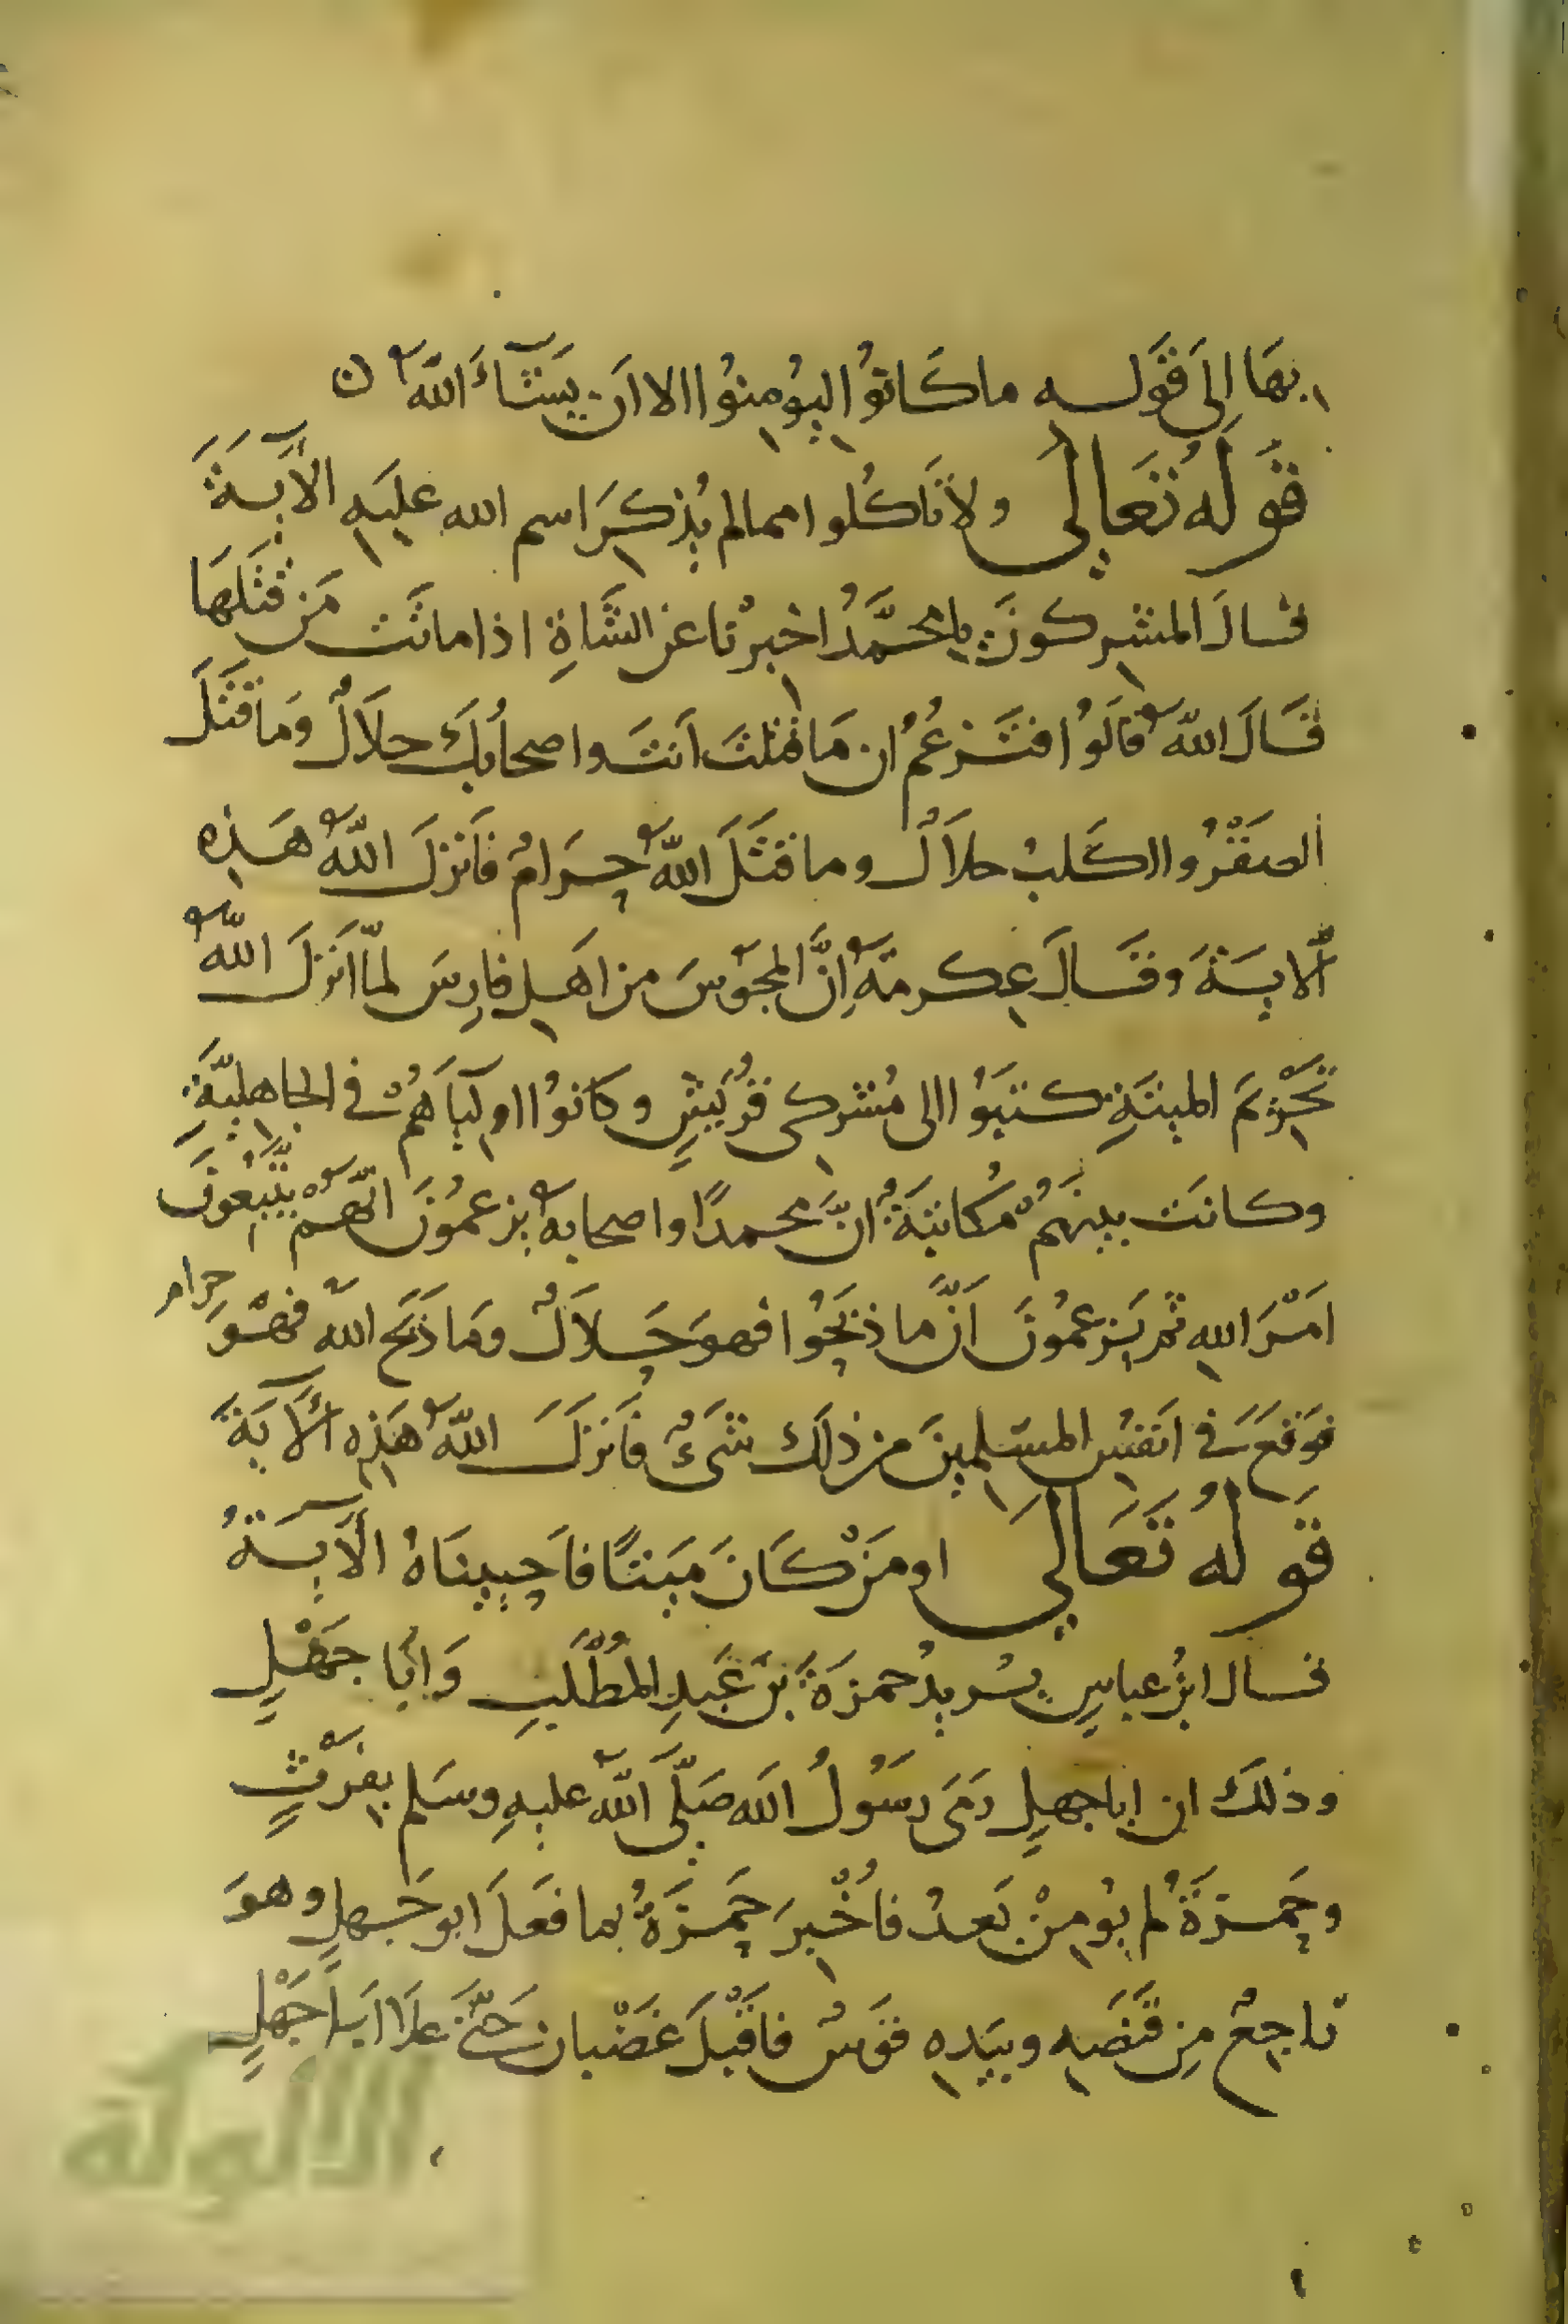 بها الى قوله ما كانوا ليومنوا الا ان يشاء الله
قوله تعالى ولا تاكلوا مما لم يذكر اسم الله عليه الآية
قال المشركون يا محمد اخبرنا عن الشاة اذا ماتت من قتلها
قال الله قالوا افتزعم ان ما قتلت انت واصحابك حلال وما قتل
الصقر والكلب حلال وما قتل الله حرام فانزل الله هذه
الاية وقال عكرمة ان المجوس من اهل فارس لما انزل الله
تحريم الميتة كتبوا الى مشركي قريش وكانوا اولياهم في الجاهلية
وكانت بينهم مكاتبة ان محمدا واصحابه يزعمون انهم يتبعون
امر الله ثم يزعمون ان ما ذبحوا فهو حلال وما ذبح الله فهو حرام
فوقع في انفس المسلمين من ذلك شيء فانزل الله هذه الآية
قوله تعالى اومن كان ميتا فاحييناه الآية
قال ابن عباس يريد حمزة بن عبد المطلب وابا جهل
وذلك ان ابا جهل رمى رسول الله صلى الله عليه وسلم بفرث
وحمزة لم يومن بعد فاخبر حمزة بما فعل ابو جهل وهو
راجع من قنصه وبيده قوس فاقبل غضبان حتى علا ابا جهل
الألوكة